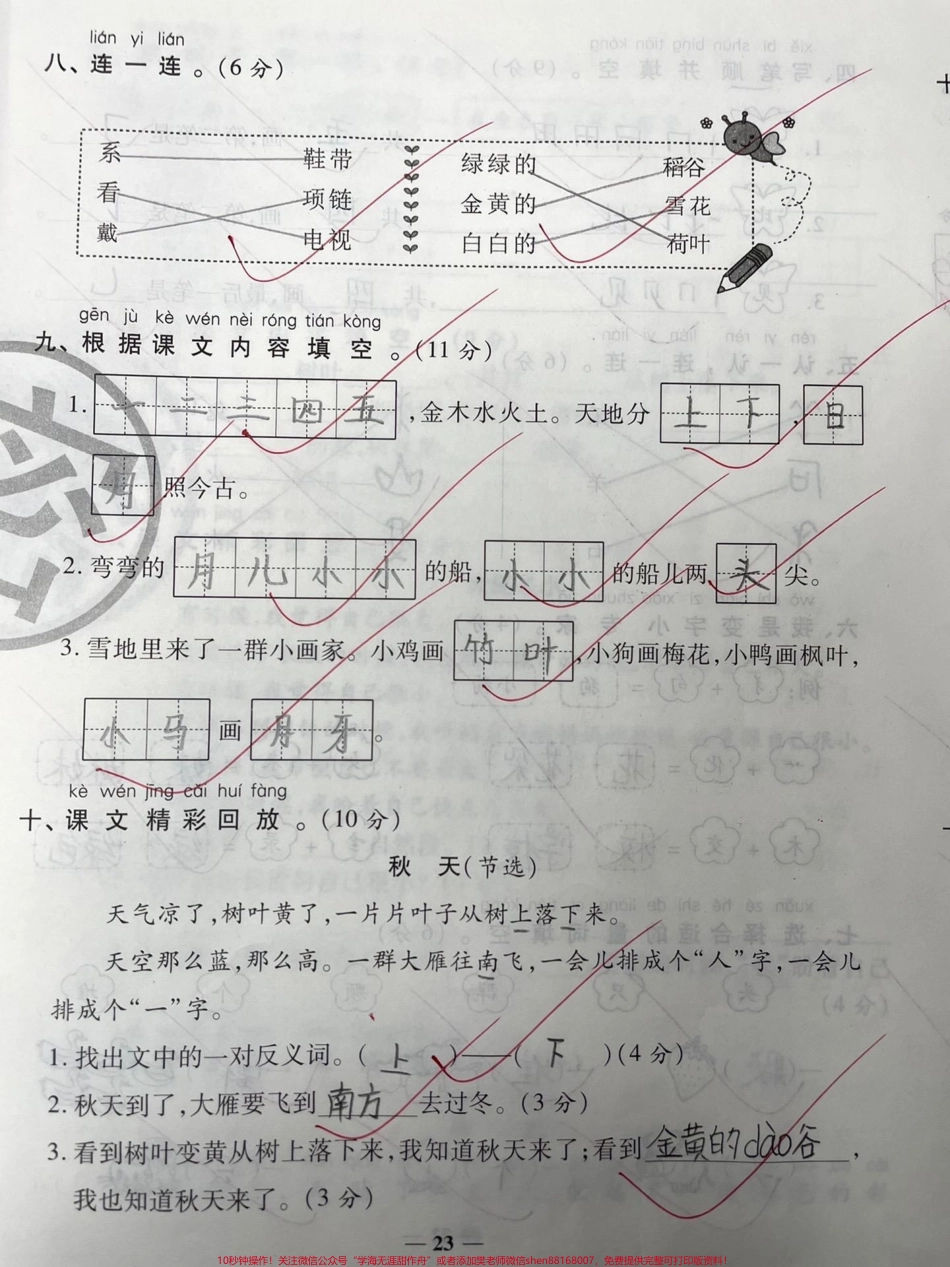 lián yi lián
八、连一连。(6分)
系 鞋带 绿绿的 稻谷
看 项链 金黄的 雪花
戴 电视 白白的 荷叶
gēn jù kè wén nèi róng tián kòng
九、根据课文内容填空。(11分)
1. 一二三四五,金木水火土。天地分上下,日
月照今古。
2. 弯弯的月儿小小的船,小小的船儿两头尖。
3. 雪地里来了一群小画家。小鸡画竹叶,小狗画梅花,小鸭画枫叶,
小马画月牙。
kè wén jīng cǎi huí fàng
十、课文精彩回放。(10分)
秋 天(节选)
天气凉了,树叶黄了,一片片叶子从树上落下来。
天空那么蓝,那么高。一群大雁往南飞,一会儿排成个“人”字,一会儿
排成个“一”字。
1. 找出文中的一对反义词。(上)——(下)(4分)
2. 秋天到了,大雁要飞到南方去过冬。(3分)
3. 看到树叶变黄从树上落下来,我知道秋天来了;看到金黄的dào谷,
我也知道秋天来了。(3分)
— 23 —
10秒钟操作!关注微信公众号“学海无涯甜作舟”或者添加樊老师微信shen88168007,免费提供完整可打印版资料!